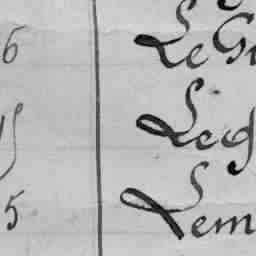 6 Le Ge
15 Leg
5 Lem